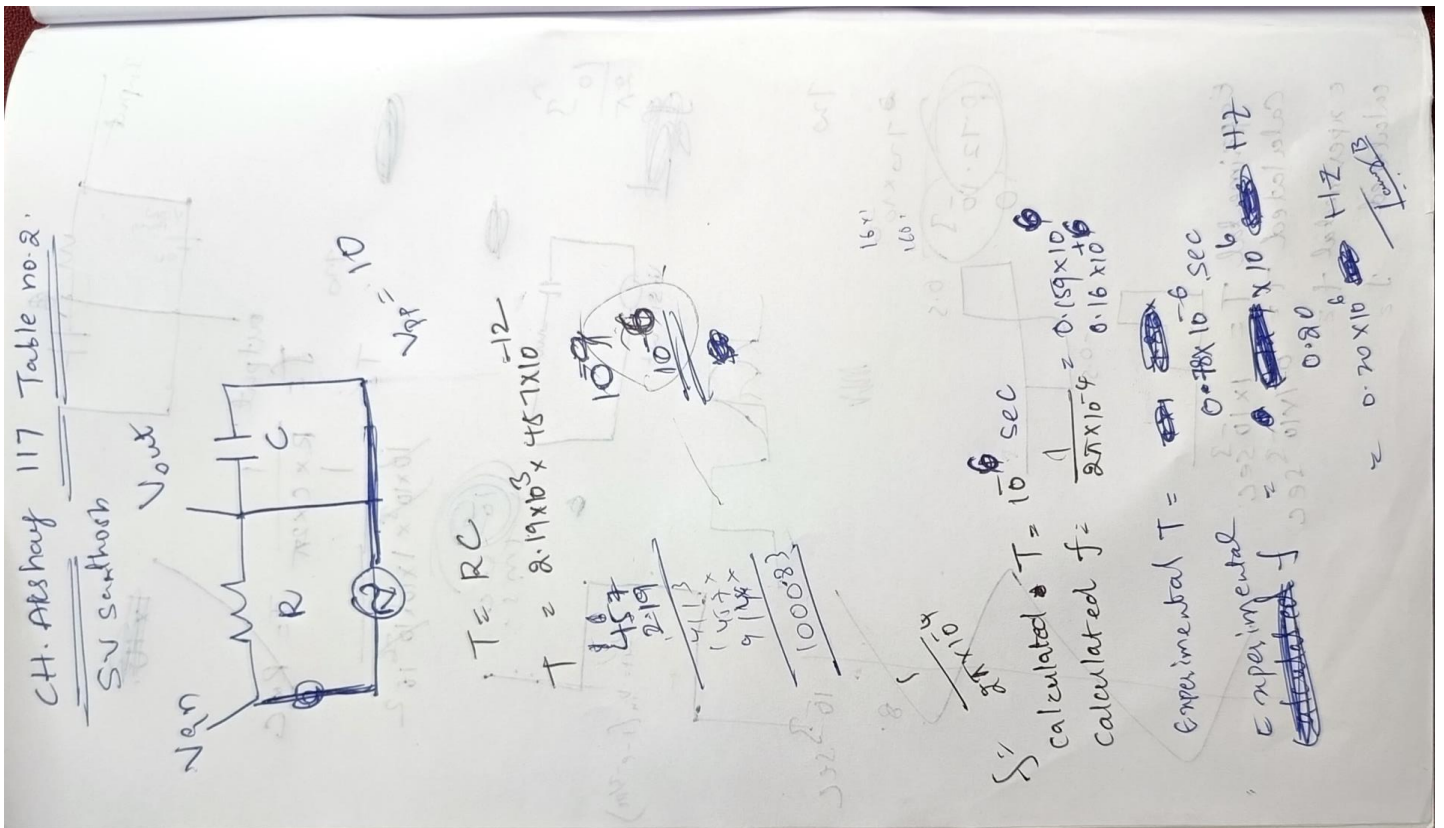 CH. Akshay 117 Table no. 2.
SV Santhosh
Vout
Vin
R
C
Vpp = 10
T = RC
T = 2.19x10³ x 457x10⁻¹²
457
2.19
4113
457x
914xx
100083
10⁻⁹
10⁻⁶
16x1
160
f = 1/2π x10⁻⁴
calculated T = 10⁻⁶ sec
calculated f = 1/2πx10⁻⁴ = 0.159x10⁶
0.16x10⁺⁶
Experimental T =
0.78x10⁻⁶ sec
Experimental f = x10⁶ HZ
0.20
= 0.20x10⁶ HZ